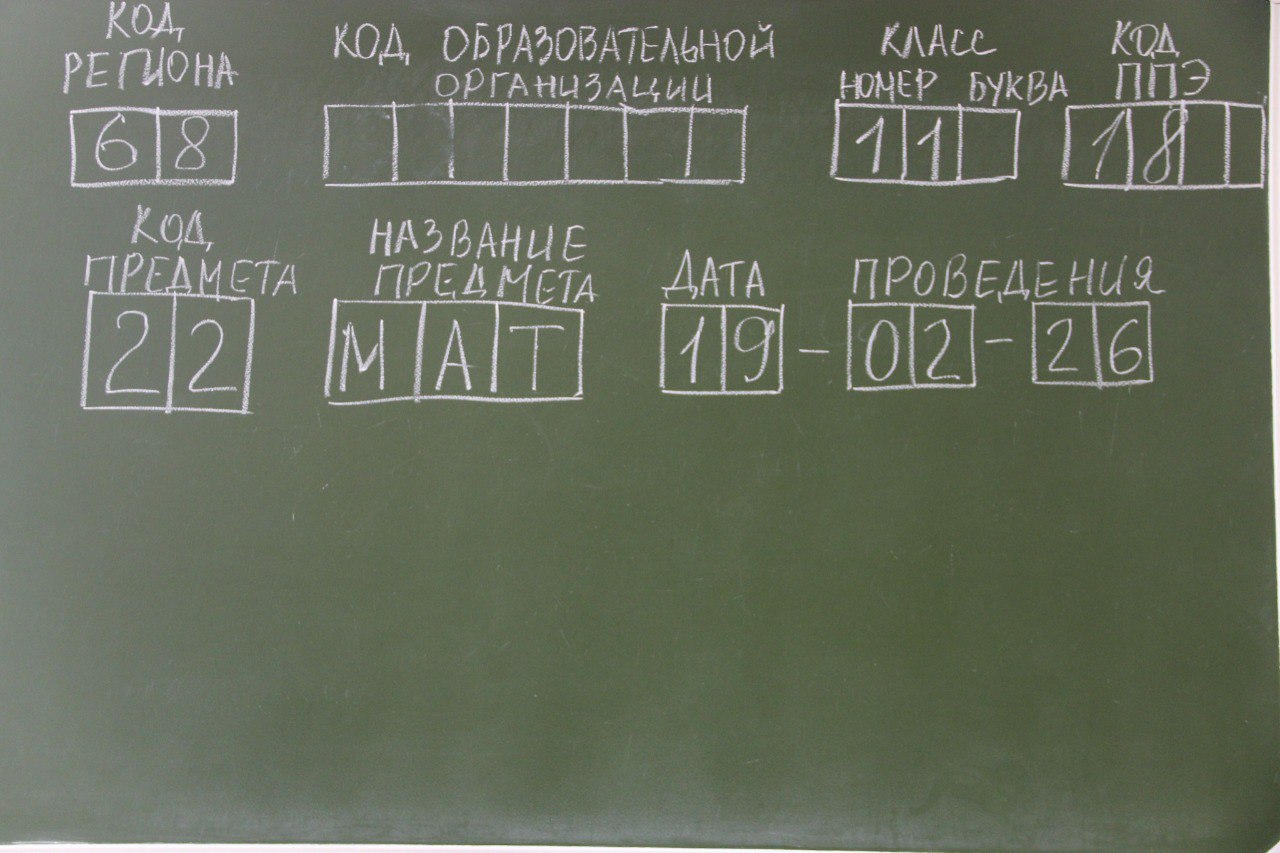 КОД РЕГИОНА
КОД ОБРАЗОВАТЕЛЬНОЙ ОРГАНИЗАЦИИ
КЛАСС
НОМЕР БУКВА
КОД ППЭ
68
11
18
КОД ПРЕДМЕТА
НАЗВАНИЕ ПРЕДМЕТА
ДАТА ПРОВЕДЕНИЯ
22
МАТ
19-02-26